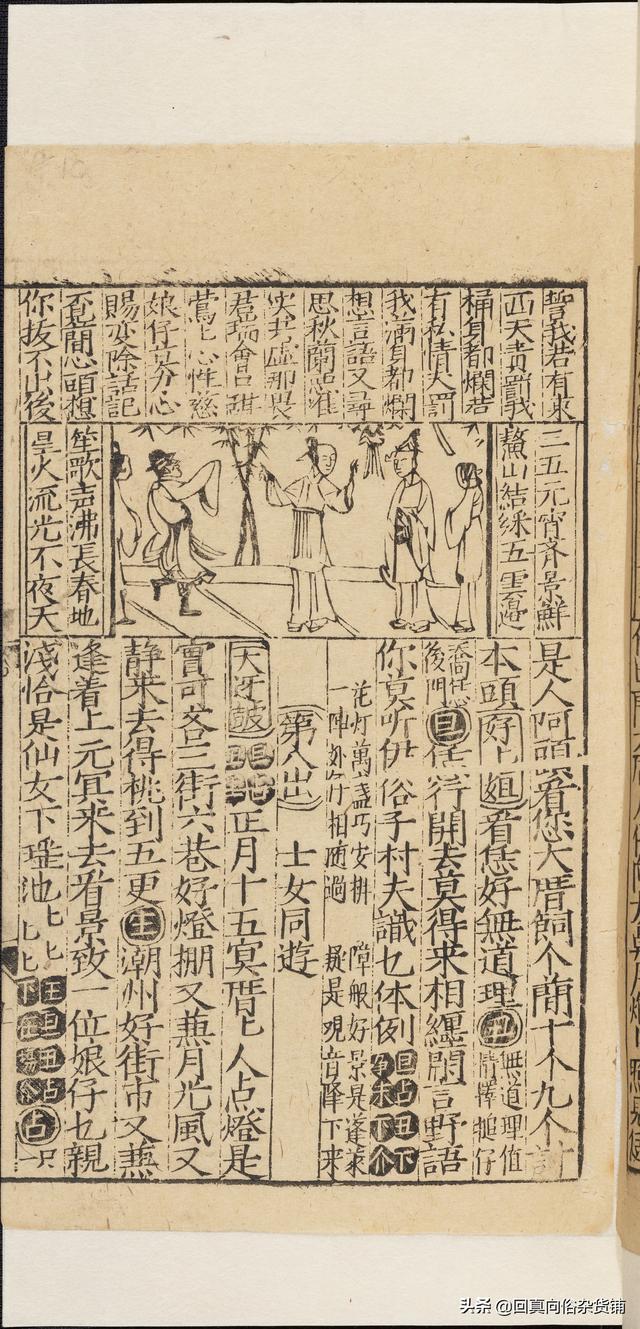 誓我若有東
西天責罰我
桶身都爛若
有私情天罰
我滿身都爛
想言語又尋
思秋蘭忍准
共虛那畏
君瑞會
鶯匕心性慈
娘仔莫分心
賜变除話記
簡心頭想
你抜不出後
三五元宵齐景鮮
鰲山結綵五雲邉
笙歌声沸長春地
星火流光不夜天
是人阿頭看您大厝飼个簡十个九个討
本頭好匕姐看恁好無道理丑無道理值
後門旦恁行開去莫得来相纏閑言野語
你莫听伊俗子村夫識乜体例旦占丑下净末丁介
花灯萬盞巧安排障般好景是蓬萊
一陣相随過疑是观音降下来
第八出士女同遊
大迓鼓正月十五冥厝匕人点燈是
實可吝三街六巷好燈棚又兼月光風又
静来去得桃到五更生潮州好街市又兼
逢着上元冥来去看景致一位娘仔乜親
浅恰是仙女下瑤池匕匕匕匕王旦丑占占一尺
头条 @回真向俗杂货铺